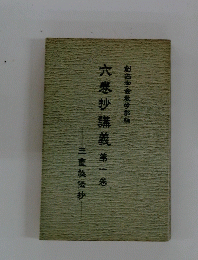 創価学会教学部編
六巻抄講義 第一巻
―三重秘伝抄―